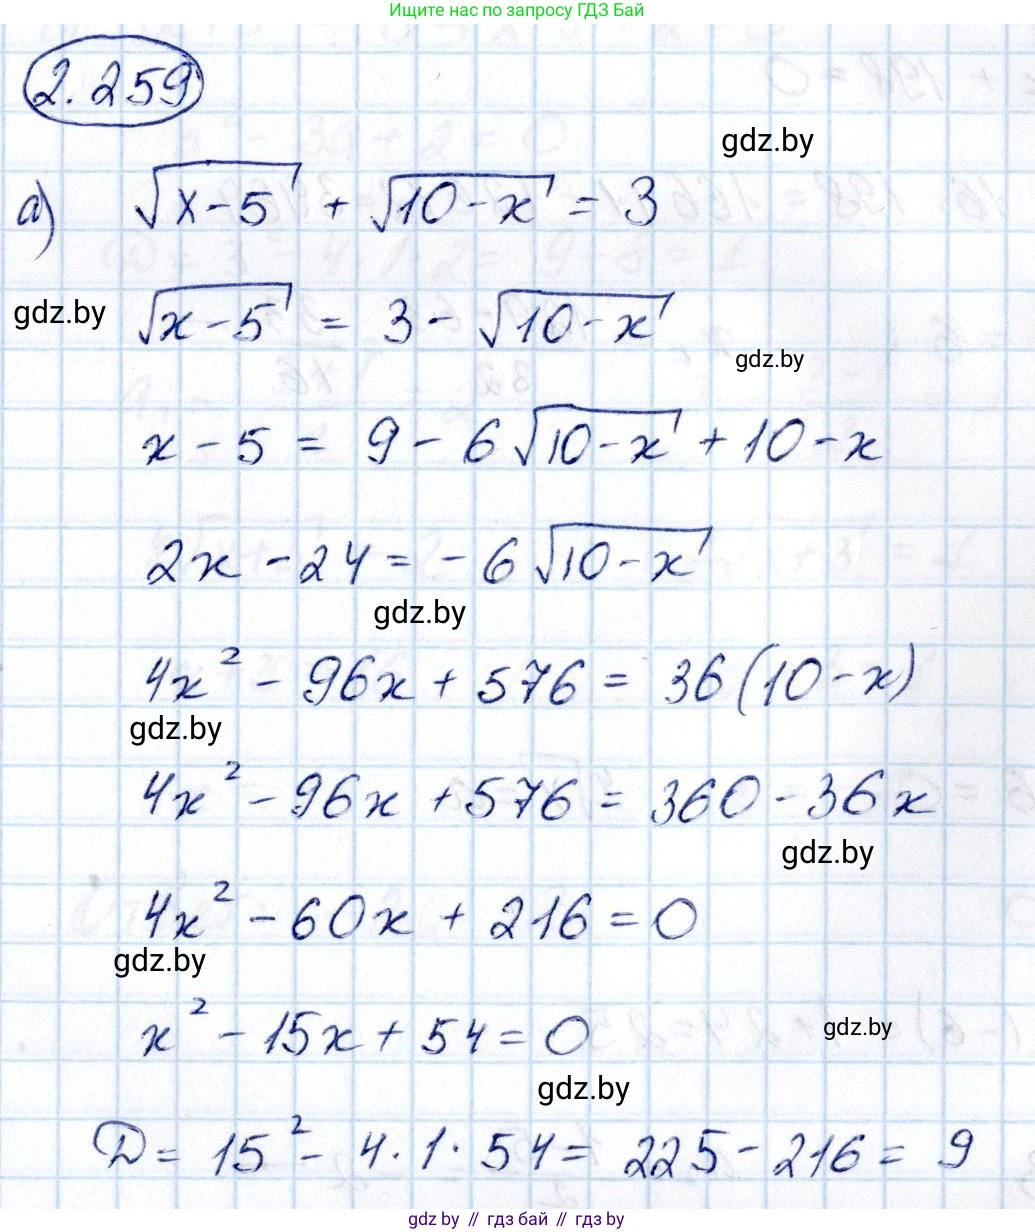 Ищите нас по запросу ГДЗ Бай
2.259
gdz.by
а) √(x-5) + √(10-x) = 3
gdz.by
√(x-5) = 3 - √(10-x)
gdz.by
x - 5 = 9 - 6√(10-x) + 10 - x
2x - 24 = -6√(10-x)
gdz.by
4x² - 96x + 576 = 36(10-x)
gdz.by
4x² - 96x + 576 = 360 - 36x
gdz.by
4x² - 60x + 216 = 0
gdz.by
x² - 15x + 54 = 0
gdz.by
gdz.by
D = 15² - 4·1·54 = 225 - 216 = 9
gdz.by // гдз бай // гдз by